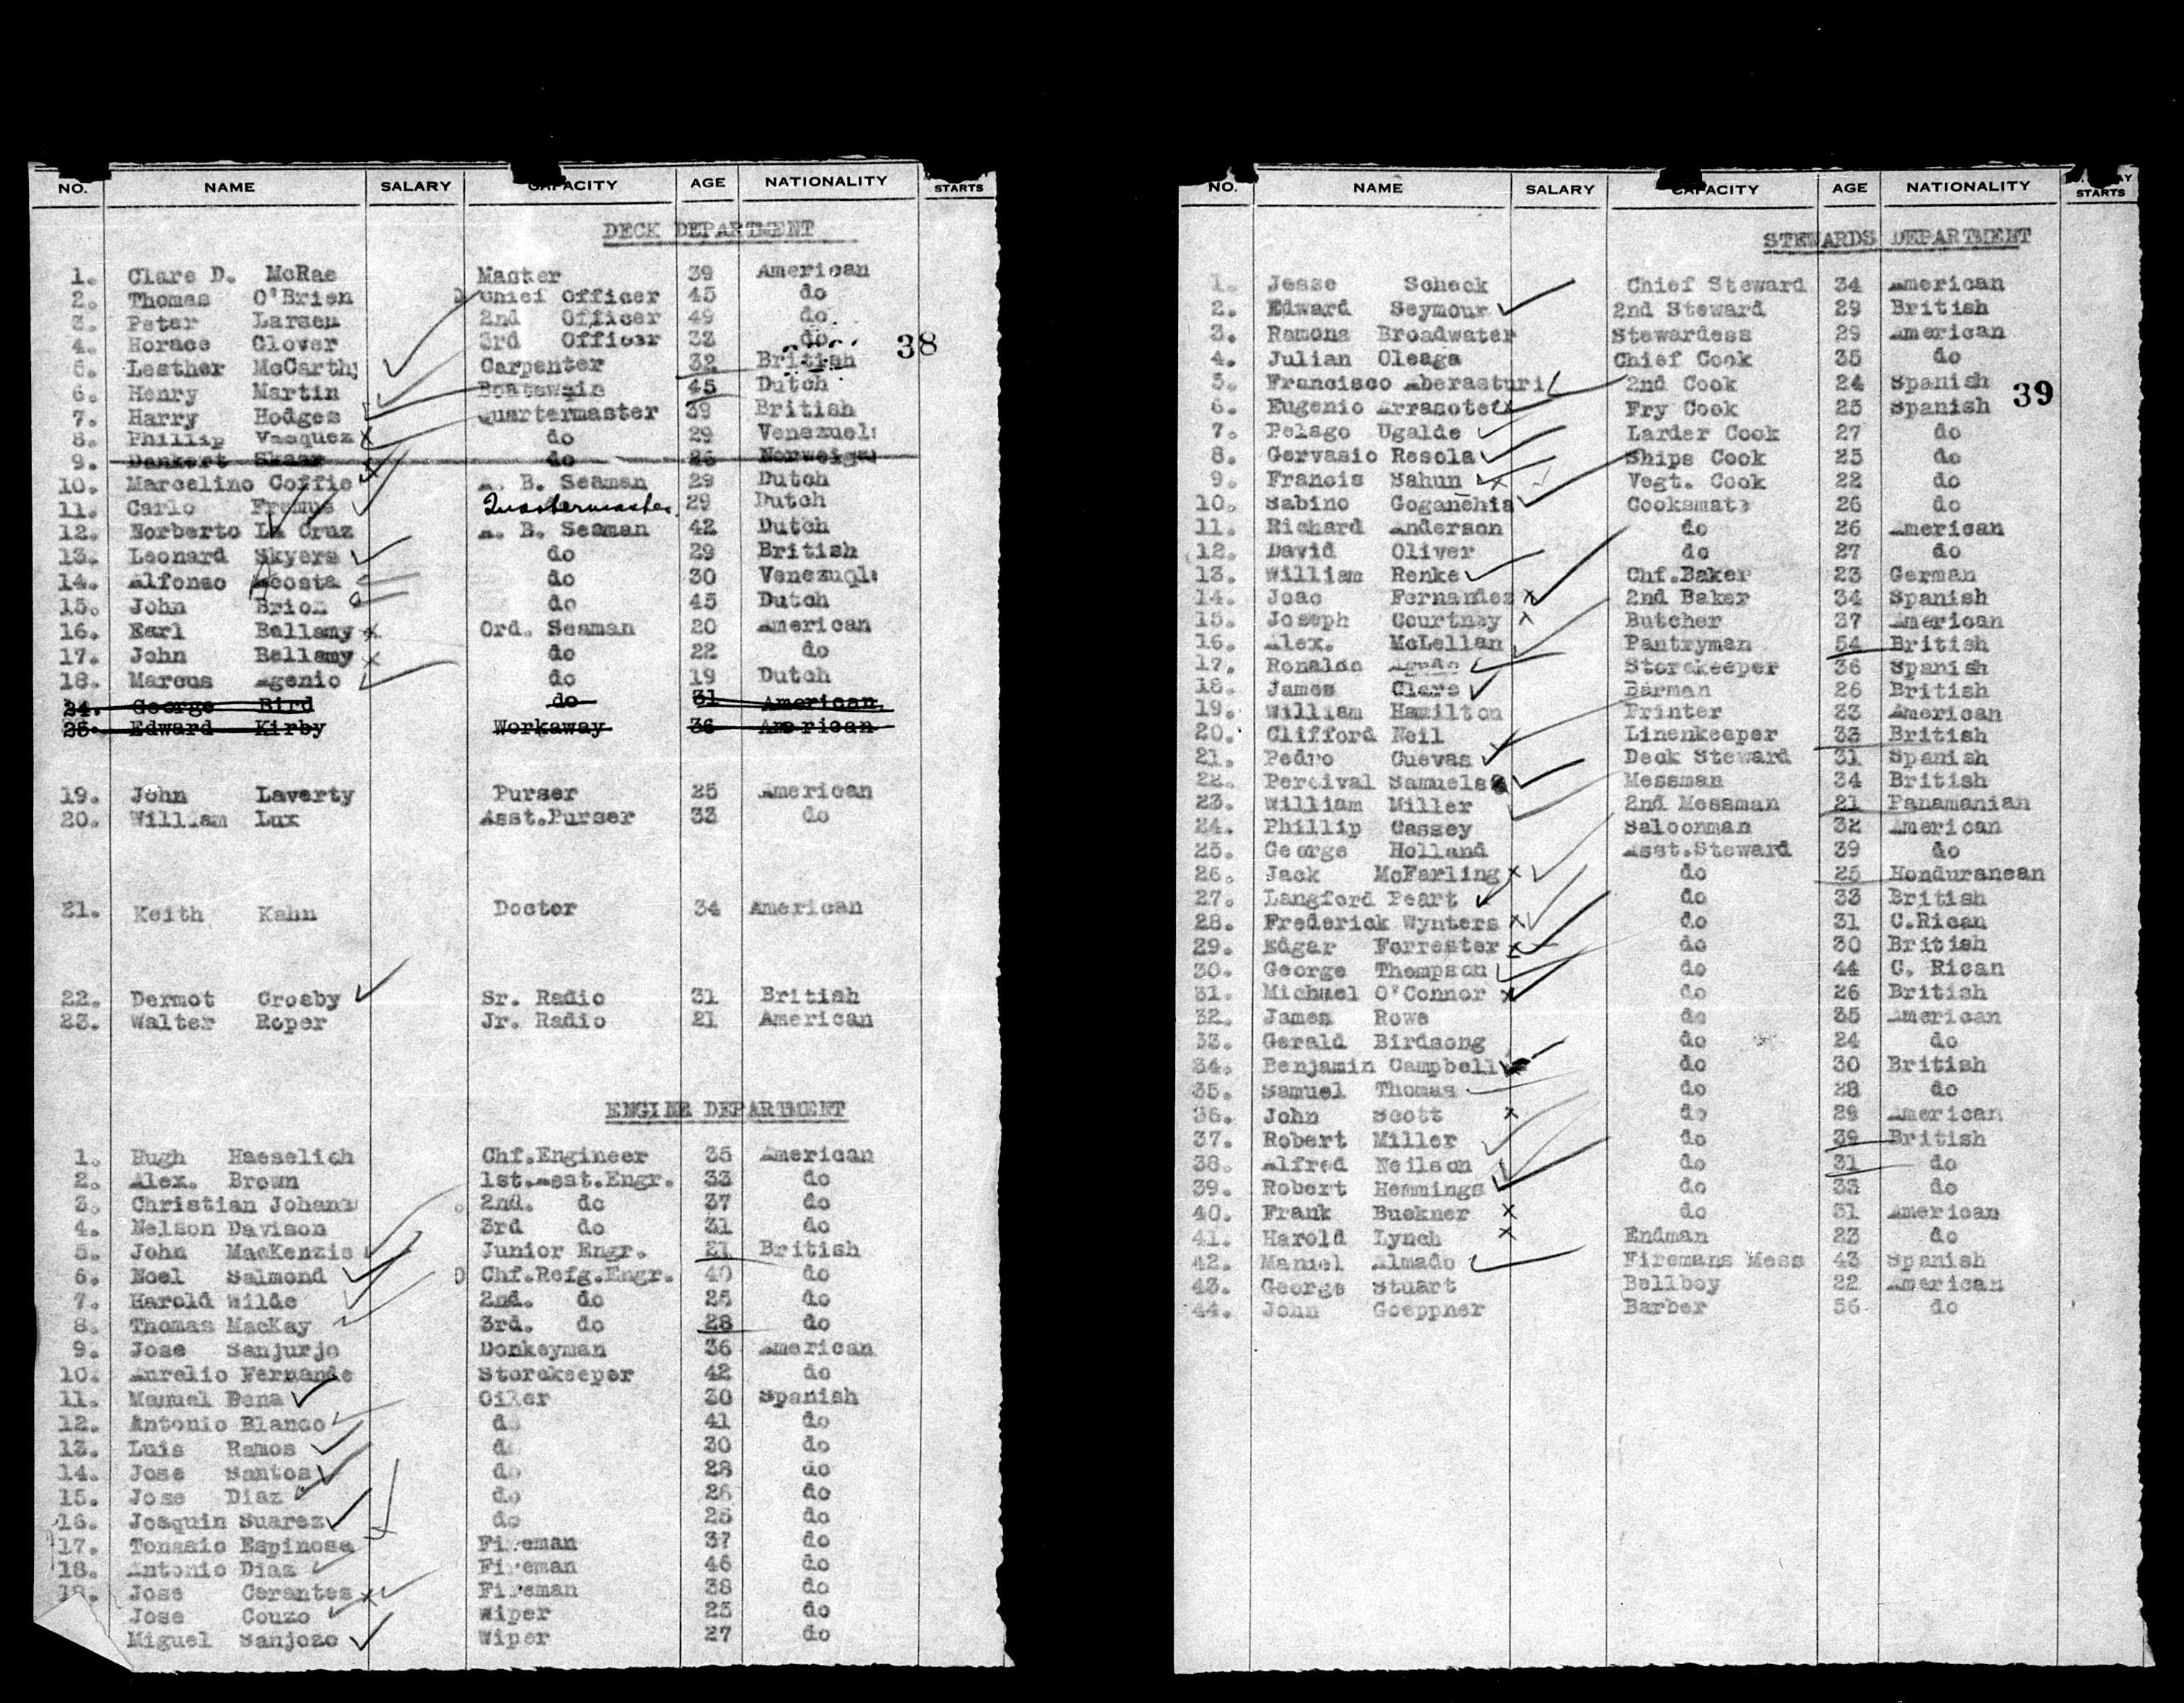 NO. NAME SALARY CAPACITY AGE NATIONALITY STARTS
DECK DEPARTMENT
1. Clare D. McRae Master 39 American
2. Thomas O'Brien Chief Officer 45 do
3. Peter Larsen 2nd Officer 49 do
4. Horace Glover 3rd Officer 33 do
38
5. Leather McCarthy Carpenter 32 British
6. Henry Martin Boatswain 45 Dutch
7. Harry Hodges Quartermaster 39 British
8. Phillip Vasquez do 29 Venezuel
9. Dankert Skaar do 26 Norweigan
10. Marcelino Coffie A. B. Seaman 29 Dutch
11. Carlo Fremus Quartermaster 29 Dutch
12. Norberto La Cruz A. B. Seaman 42 Dutch
13. Leonard Skyers do 29 British
14. Alfonso Acosta do 30 Venezuela
15. John Brion do 45 Dutch
16. Earl Bellamy Ord. Seaman 20 American
17. John Bellamy do 22 do
18. Marcus Agenio do 19 Dutch
24. George Bird do 31 American
25. Edward Kirby Workaway 36 American
19. John Laverty Purser 25 American
20. William Lux Asst.Purser 33 do
21. Keith Kahn Doctor 34 American
22. Dermot Crosby Sr. Radio 31 British
23. Walter Roper Jr. Radio 21 American
ENGINE DEPARTMENT
1. Hugh Haeselich Chf.Engineer 35 American
2. Alex. Brown 1st.Asst.Engr. 33 do
3. Christian Johan 2nd. do 37 do
4. Nelson Davison 3rd do 31 do
5. John MacKenzie Junior Engr. 21 British
6. Noel Salmond Chf.Refg.Engr. 40 do
7. Harold Wilde 2nd. do 25 do
8. Thomas MacKay 3rd. do 28 do
9. Jose Sanjurjo Donkeyman 36 American
10. Aurelio Fernande Storekeeper 42 do
11. Manuel Pena Oiler 30 Spanish
12. Antonio Blanco do 41 do
13. Luis Ramos do 30 do
14. Jose Santos do 28 do
15. Jose Diaz do 26 do
16. Joaquin Suarez do 25 do
17. Tomasio Espinosa Fireman 37 do
18. Antonio Diaz Fireman 46 do
19. Jose Cerantes Fireman 38 do
Jose Couzo Wiper 25 do
Miguel Sanjozo Wiper 27 do
NO. NAME SALARY CAPACITY AGE NATIONALITY STARTS
STEWARDS DEPARTMENT
1. Jesse Scheck Chief Steward 34 American
2. Edward Seymour 2nd Steward 29 British
3. Ramona Broadwater Stewardess 29 American
4. Julian Oleaga Chief Cook 35 do
5. Francisco Aberasturi 2nd Cook 24 Spanish
39
6. Eugenio Arrasotet Fry Cook 25 Spanish
7. Pelago Ugalde Larder Cook 27 do
8. Gervasio Resola Ships Cook 25 do
9. Francis Sahun Vegt. Cook 22 do
10. Sabino Goganehia Cooksmate 26 do
11. Richard Anderson do 26 American
12. David Oliver do 27 do
13. William Renke Chf.Baker 23 German
14. Joao Fernandez 2nd Baker 34 Spanish
15. Joseph Courtney Butcher 37 American
16. Alex. McLellan Pantryman 54 British
17. Ronaldo Storekeeper 36 Spanish
18. James Clare Barman 26 British
19. William Hamilton Printer 23 American
20. Clifford Neil Linenkeeper 33 British
21. Pedro Cuevas Deck Steward 31 Spanish
22. Percival Samuels Messman 34 British
23. William Miller 2nd Messman 21 Panamanian
24. Phillip Gassey Saloonman 32 American
25. George Holland Asst.Steward 39 do
26. Jack McFarling do 25 Honduranean
27. Langford Peart do 33 British
28. Frederick Wynters do 31 C.Rican
29. Edgar Forrester do 30 British
30. George Thompson do 44 C. Rican
31. Michael O'Connor do 26 British
32. James Rowe do 35 American
33. Gerald Birdsong do 24 do
34. Benjamin Campbell do 30 British
35. Samuel Thomas do 28 do
36. John Scott do 29 American
37. Robert Miller do 39 British
38. Alfred Neilson do 31 do
39. Robert Hemmings do 33 do
40. Frank Buckner do 31 American
41. Harold Lynch Endman 23 do
42. Manuel Almado Firemans Mess 43 Spanish
43. George Stuart Bellboy 22 American
44. John Goeppner Barber 56 do